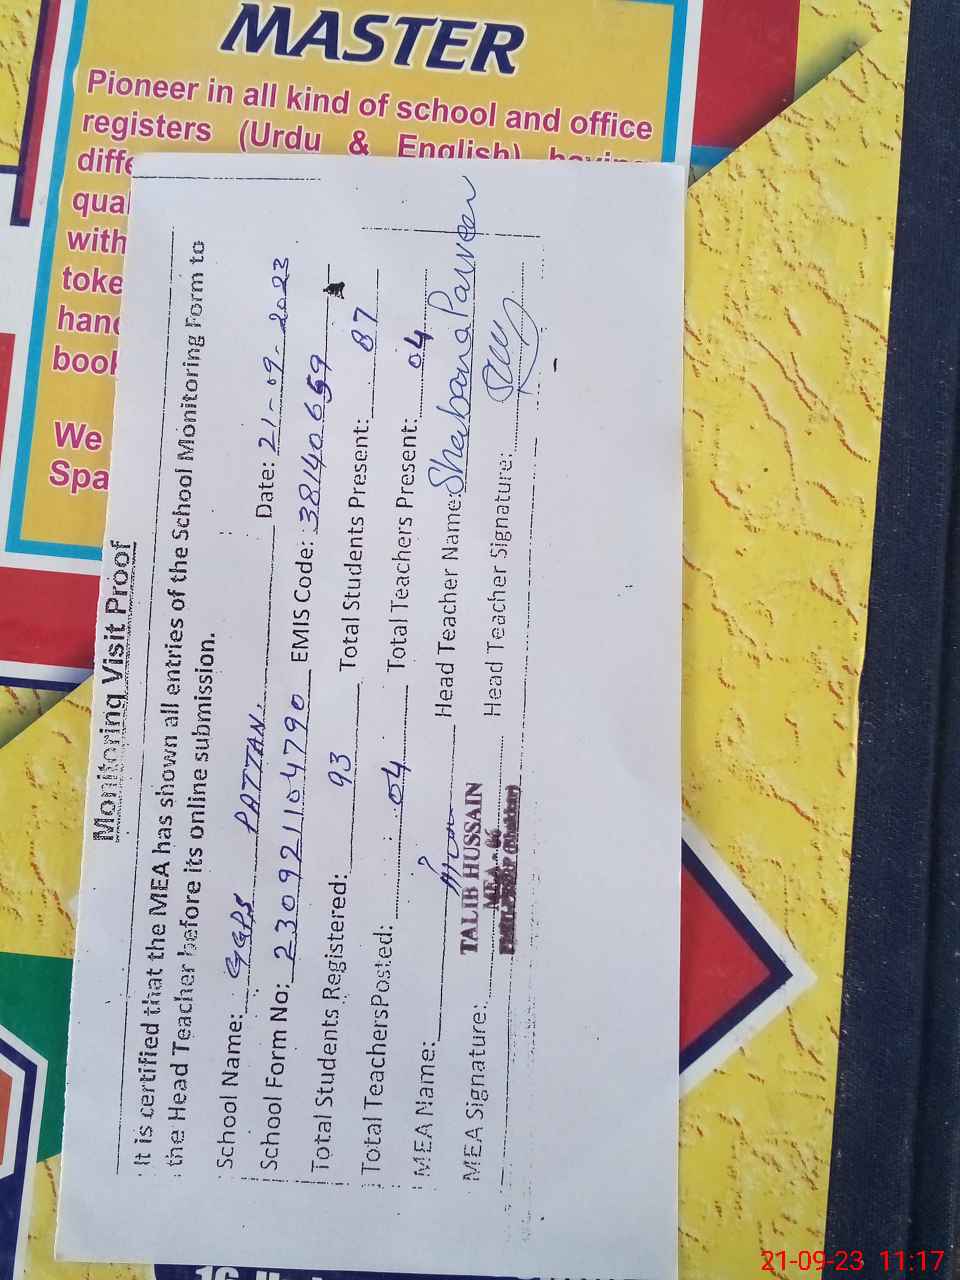 MASTER
Pioneer in all kind of school and office
registers (Urdu & English) having
diffe
qua
with
toke
hand
book
We
Spa
Monitoring Visit Proof
It is certified that the MEA has shown all entries of the School Monitoring Form to
the Head Teacher before its online submission.
School Name: GGPS PATTAN. Date: 21-09-2023
School Form No: 230921104790 EMIS Code: 38140659
Total Students Registered: 93 Total Students Present: 87
Total Teachers Posted: 04 Total Teachers Present: 04
MEA Name: Head Teacher Name: Shabana Parveen
MEA Signature: Head Teacher Signature:
TALIB HUSSAIN
MEA - 06
(Bhakkar)
21-09-23 11:17